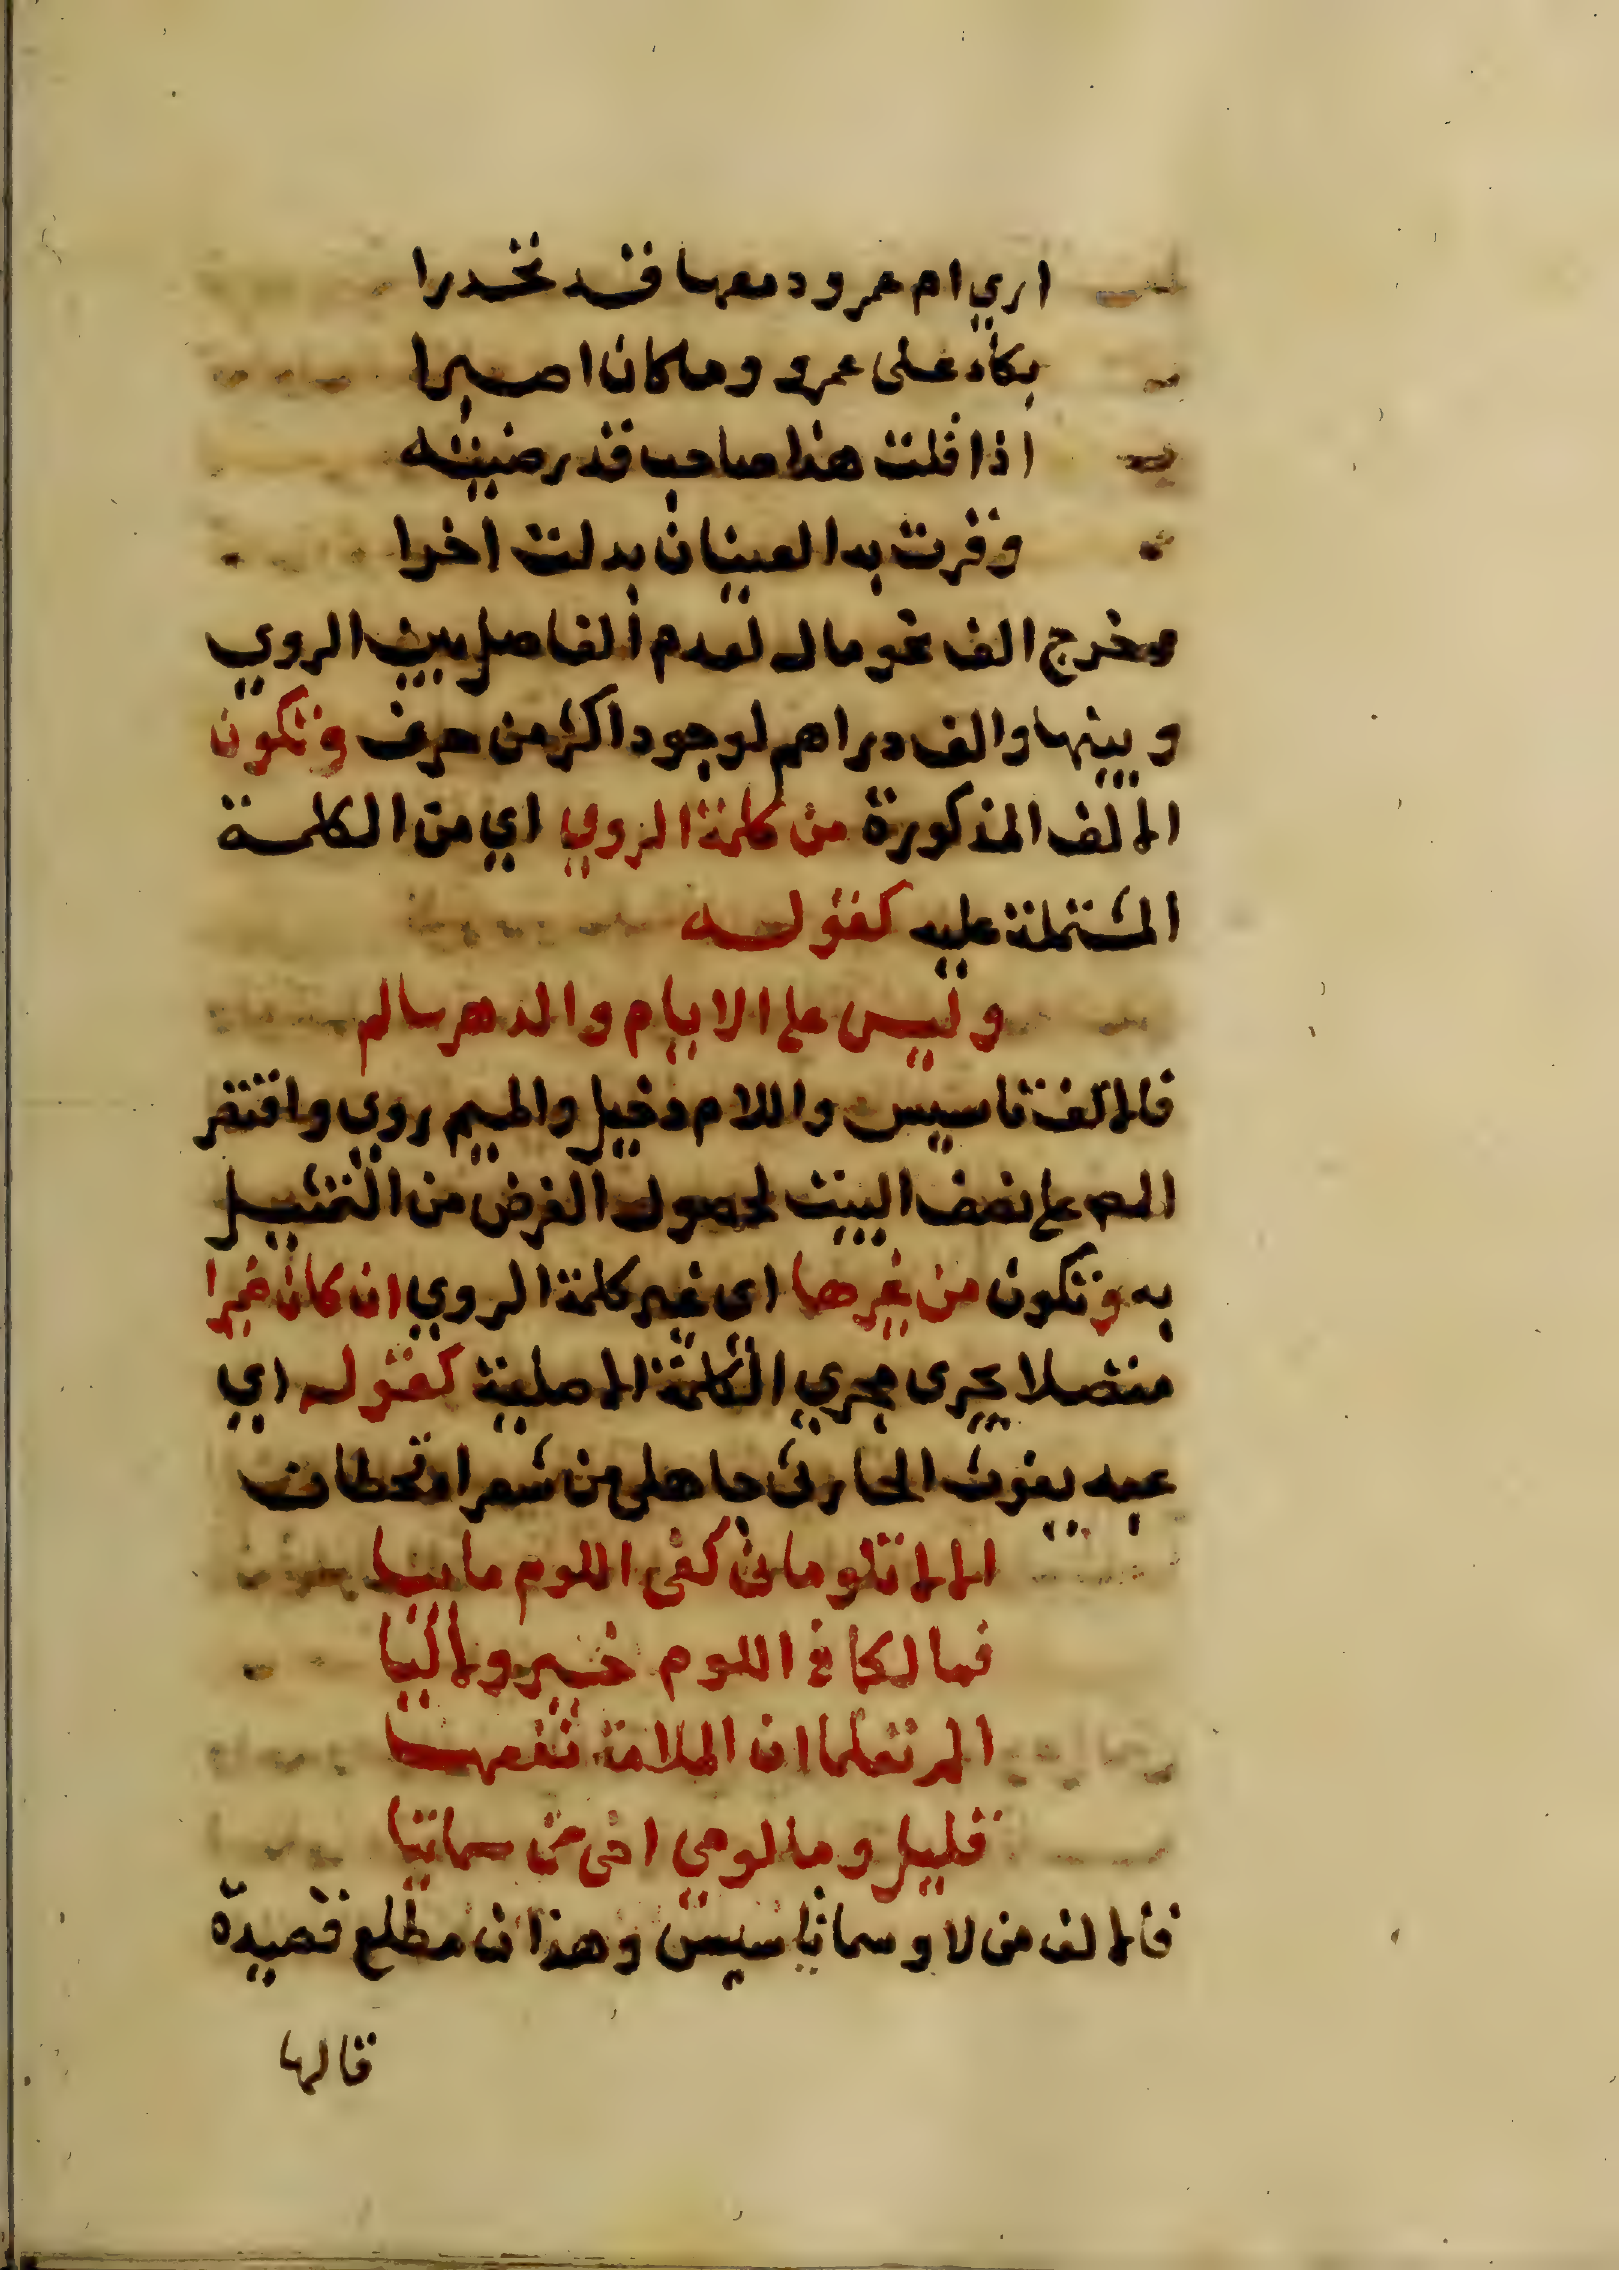 اري ام عمرو دمعها قد تخدرا
بكاء على عمرو وما كان اصبرا
اذا قلت هذا صاحب قد رضيته
وقرت به العينان بدلت اخرا
مخرج الف نحو مال لعدم الفاصل بين الروي
وبينها والف دراهم لوجود اكثر من حرف وتكون
الالف المذكورة من كلمة الروي اي من الكلمة
المشتملة عليه كقوله
وليس على الايام والدهر سالم
فالالف تاسيس واللام دخيل والميم روي واقتصر
المص على نصف البيت لحصول الغرض من التمثيل
به وتكون من غيرها اى غير كلمة الروي ان كان ضميرا
متصلا يجرى مجري الكلمة الاصلية كقوله اي
عبد يغوث الحارثى جاهلى من شعرا قحطان
الا لا تلومانى كفى اللوم ما بيا
فما لكما في اللوم خير ولا ليا
الم تعلما ان الملامة نفعها
قليل وما لومي اخى من سماتيا
فالالف من لا وسما تاسيس وهذان مطلع قصيدة
قالها